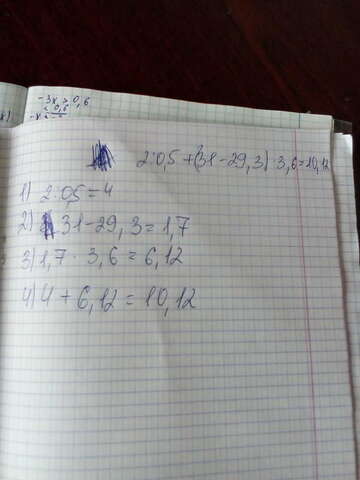 -3x > 0,6
2:0,5 + (31 - 29,3) · 3,6 = 10,12
1) 2:0,5 = 4
2) 31 - 29,3 = 1,7
3) 1,7 · 3,6 = 6,12
4) 4 + 6,12 = 10,12